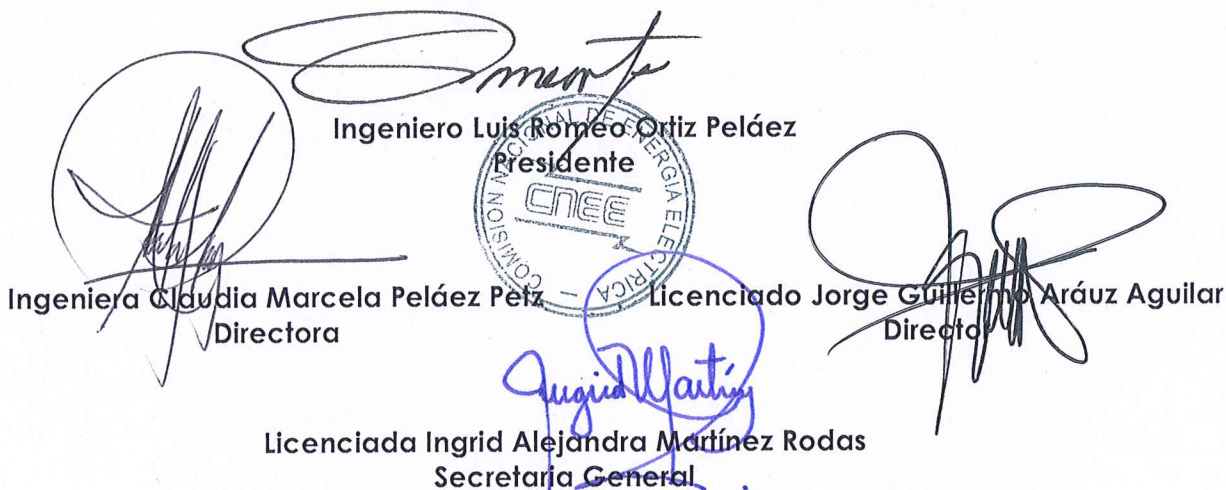 Ingeniero Luis Romeo Ortiz Peláez
Presidente
COMISION NACIONAL DE ENERGIA ELECTRICA
CNEE
Ingeniera Claudia Marcela Peláez Petz
Directora
Licenciado Jorge Guillermo Aráuz Aguilar
Director
Ingrid Martínez
Licenciada Ingrid Alejandra Martínez Rodas
Secretaria General